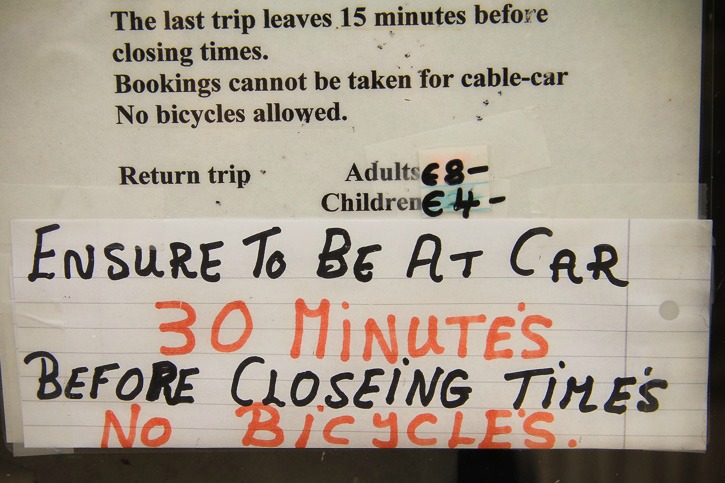 The last trip leaves 15 minutes before
closing times.
Bookings cannot be taken for cable-car
No bicycles allowed.
Return trip Adults €8-
Children €4-
ENSURE TO BE AT CAR
30 MINUTE'S
BEFORE CLOSEING TIME'S
NO BICYCLE'S.